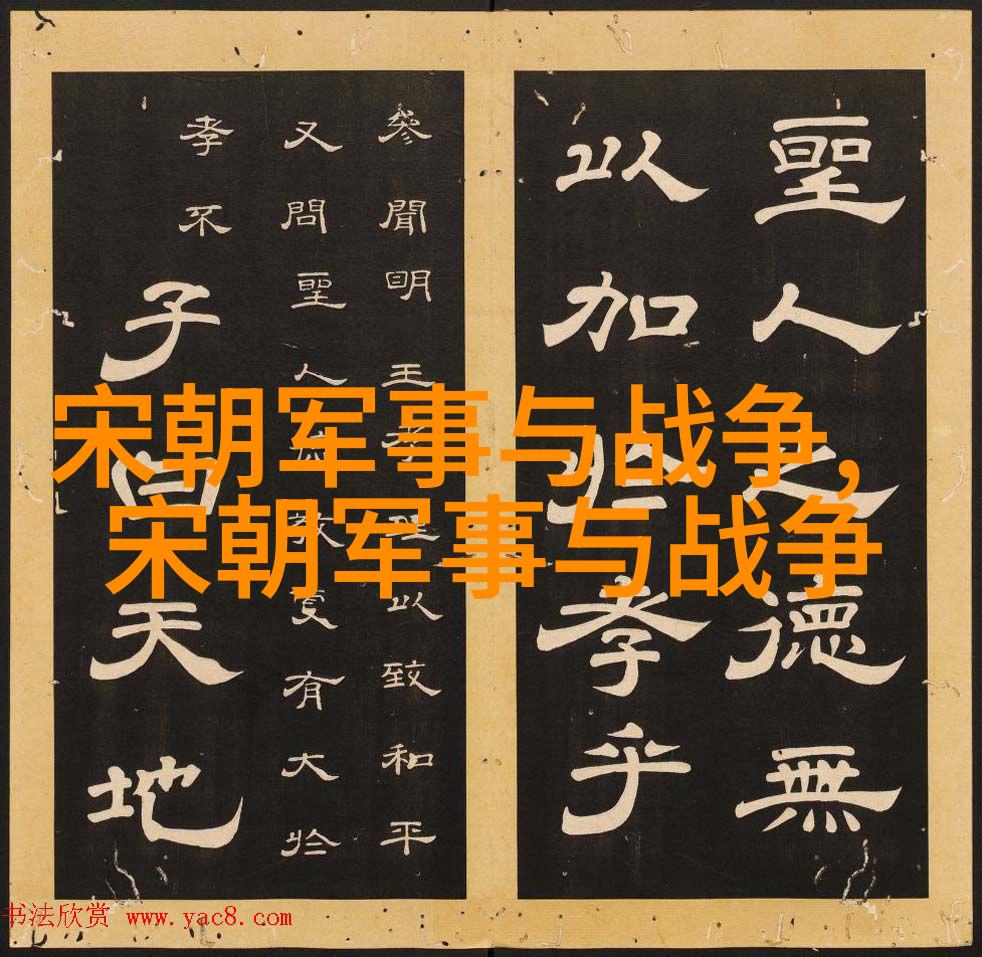 聖人之德無
以加於孝乎
參聞明王孝理以致和平
又問聖人教更有大於
孝不
子曰天地
宋朝军事与战争,
宋朝军事与战争
书法欣赏 www.yac8.com